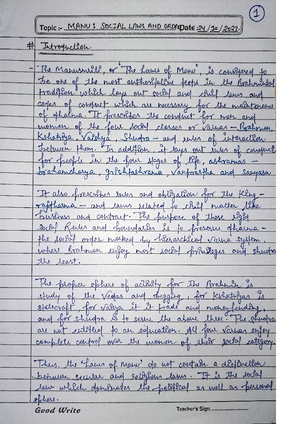 1
Topic :- MANU : SOCIAL LAWS AND ORDER Date 24/10/2021
# Introduction
- The Manusmriti, or "The Laws of Manu", is considered to
be one of the most authoritative texts in the Brahmanical
tradition which lays out social and civil laws and
codes of conduct which are necessary for the maintenance
of dharma. It prescribes the conduct for men and
women of the four social classes or Varnas - Brahmin,
Kshatriya, Vaishya, Shudra - and rules of interaction
between them. In addition, it lays out rules of conduct
for people in the four stages of life, ashramas -
brahmacharya, grihasthashrama, vanprastha and sanyasa
- It also prescribes rules and obligation for the King -
rajdharma - and laws related to civil matters like
business and contract. The purpose of these rigid
social rules and boundaries is to preserve dharma -
the social order marked by hierarchical varna system,
where brahman enjoy most social privileges and shudra
the least.
- The proper sphere of activity for the Brahmin is
study of the Vedas and for Kshatriyas is
statecraft, for Vaisya it is trade and money lending,
and for shudra is to serve the above three. The shudra
are not entitled to an education. All four Varnas enjoy
complete control over the women of their social category.
- Thus the "Laws of Manu" do not contain a distinction
between secular and religious laws. It is the social
law which dominates the political as well as personal
sphere.
Good Write
Teacher's Sign.